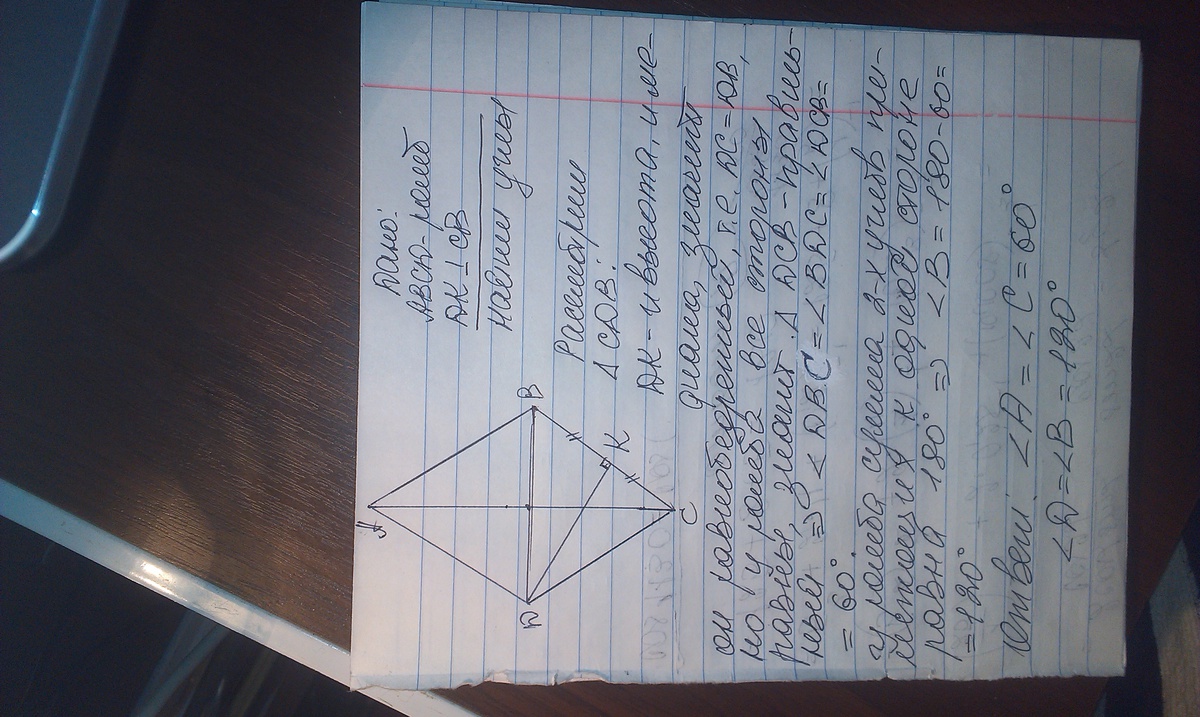 A
B
D
K
C
Дано:
ABCD-ромб
DK⊥CB
Найти углы
Рассмотрим
Δ CDB:
DK-и высота, и ме-
диана, значит
он равнобедренный, т.е. DC=DB,
но у ромба все стороны
равны, значит Δ DCB-правиль-
ный ⇒ ∠DBC=∠BDC=∠DCB=
=60°
у ромба сумма 2-х углов при-
лежащих к одной стороне
равна 180° ⇒ ∠B=180-60=
=120°
Ответ: ∠A=∠C=60°
∠D=∠B=120°